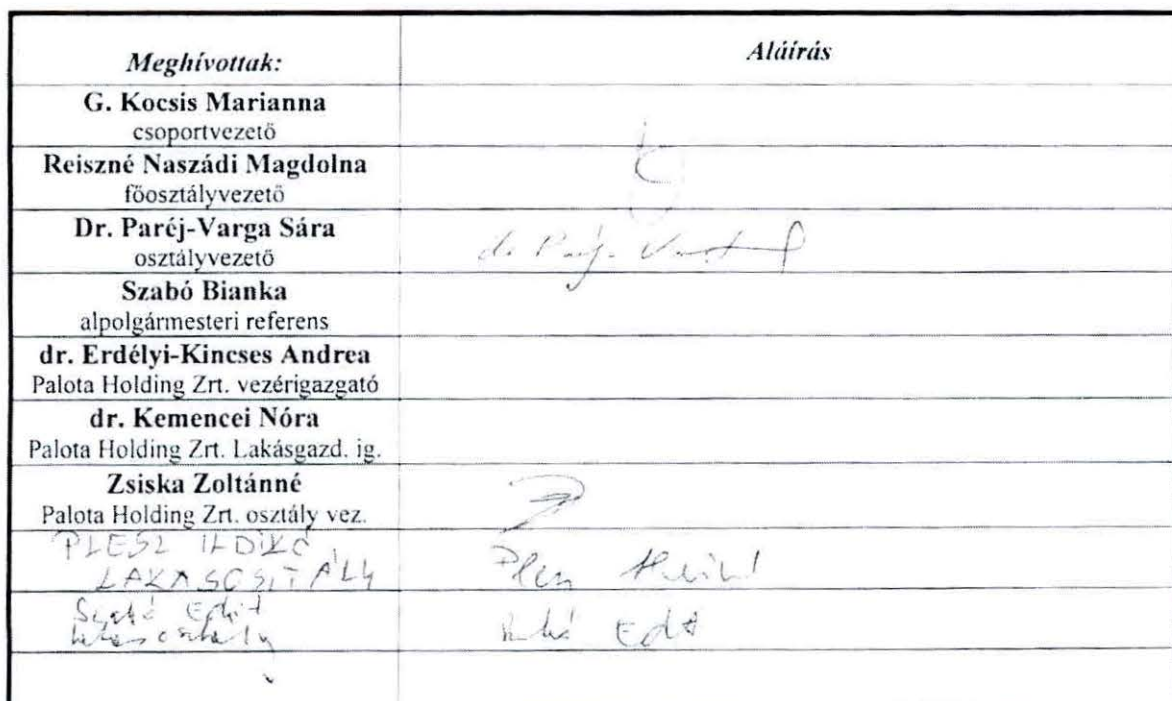 Meghívottak:
Aláírás
G. Kocsis Marianna
csoportvezető
Reiszné Naszádi Magdolna
főosztályvezető
Dr. Paréj-Varga Sára
osztályvezető
Szabó Bianka
alpolgármesteri referens
dr. Erdélyi-Kincses Andrea
Palota Holding Zrt. vezérigazgató
dr. Kemencei Nóra
Palota Holding Zrt. Lakásgazd. ig.
Zsiska Zoltánné
Palota Holding Zrt. osztály vez.
PLESZ ILDIKÓ
LAKÁSOSZTÁLY
Szabó Edit
lakásosztály